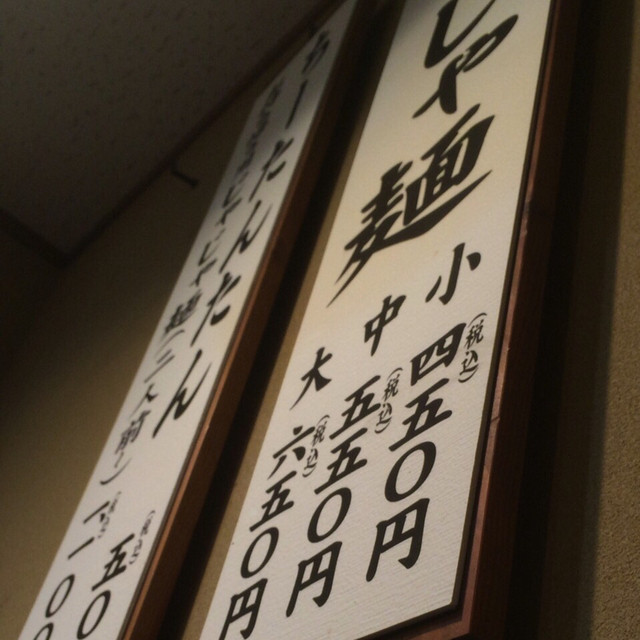 じゃ麺
小 (税込)四五〇円
中 (税込)五五〇円
大 (税込)六五〇円
ちーたんたん
(税込)五〇
じゃじゃ麺二人前)
一一〇〇